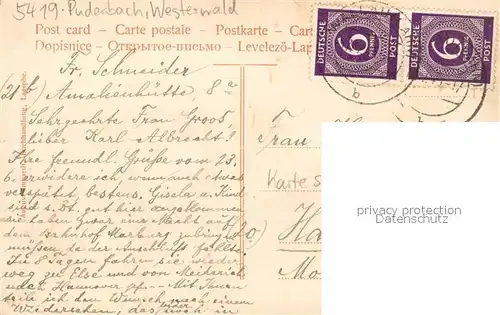 5419 · Puderbach, Westerwald
Post card — Carte postale — Postkarte — Cart
Dopisnice — Открытое письмо — Levelező-Lap
DEUTSCHE POST 6 PFENNIG
DEUTSCHE POST 6 PFENNIG
Fr. Schneider
(21b) Amalienhütte 8
Sehrgeehrte Frau Groos,
lieber Karl Albrecht!
Ihre freundl. Grüße vom 23.
6. erwidere ich, wenn auch etwas
verspätet, bestens. Gisela u. Kind
sind s. Zt. gut hier angekommen
sie haben zwar eine Nacht auf
dem Bahnhof Marburg zubringen
müssen, da der Anschluß fehlte.
In 8 Tagen fahren sie wieder
weg zu Else und von Meiderich
nach Hannover — Mit Ihnen
teile ich den Wunsch nach einem
Wiedersehen, das, wie wohl in
Frau
Karte S
20) Ha
Mo
privacy protection
Datenschutz